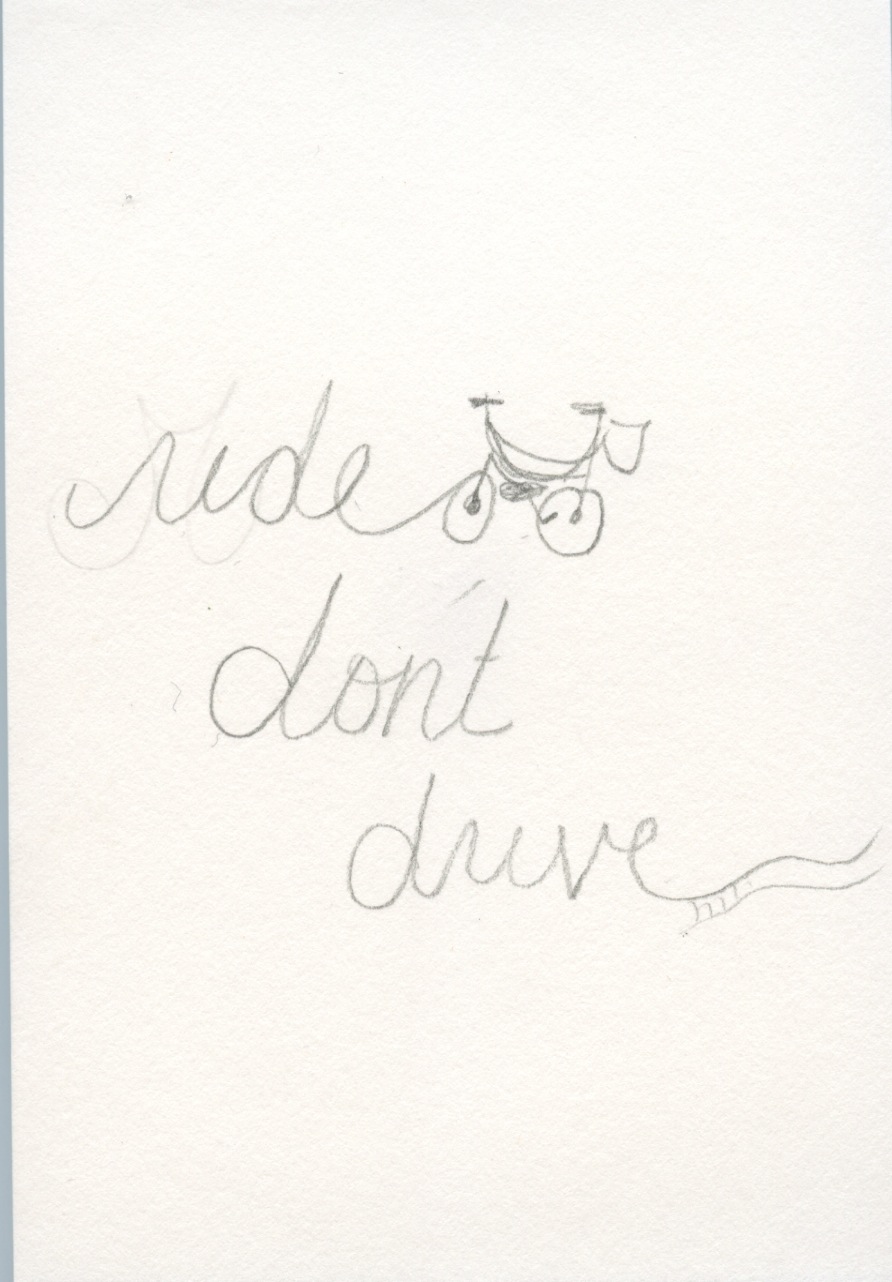 ride
don't
drive